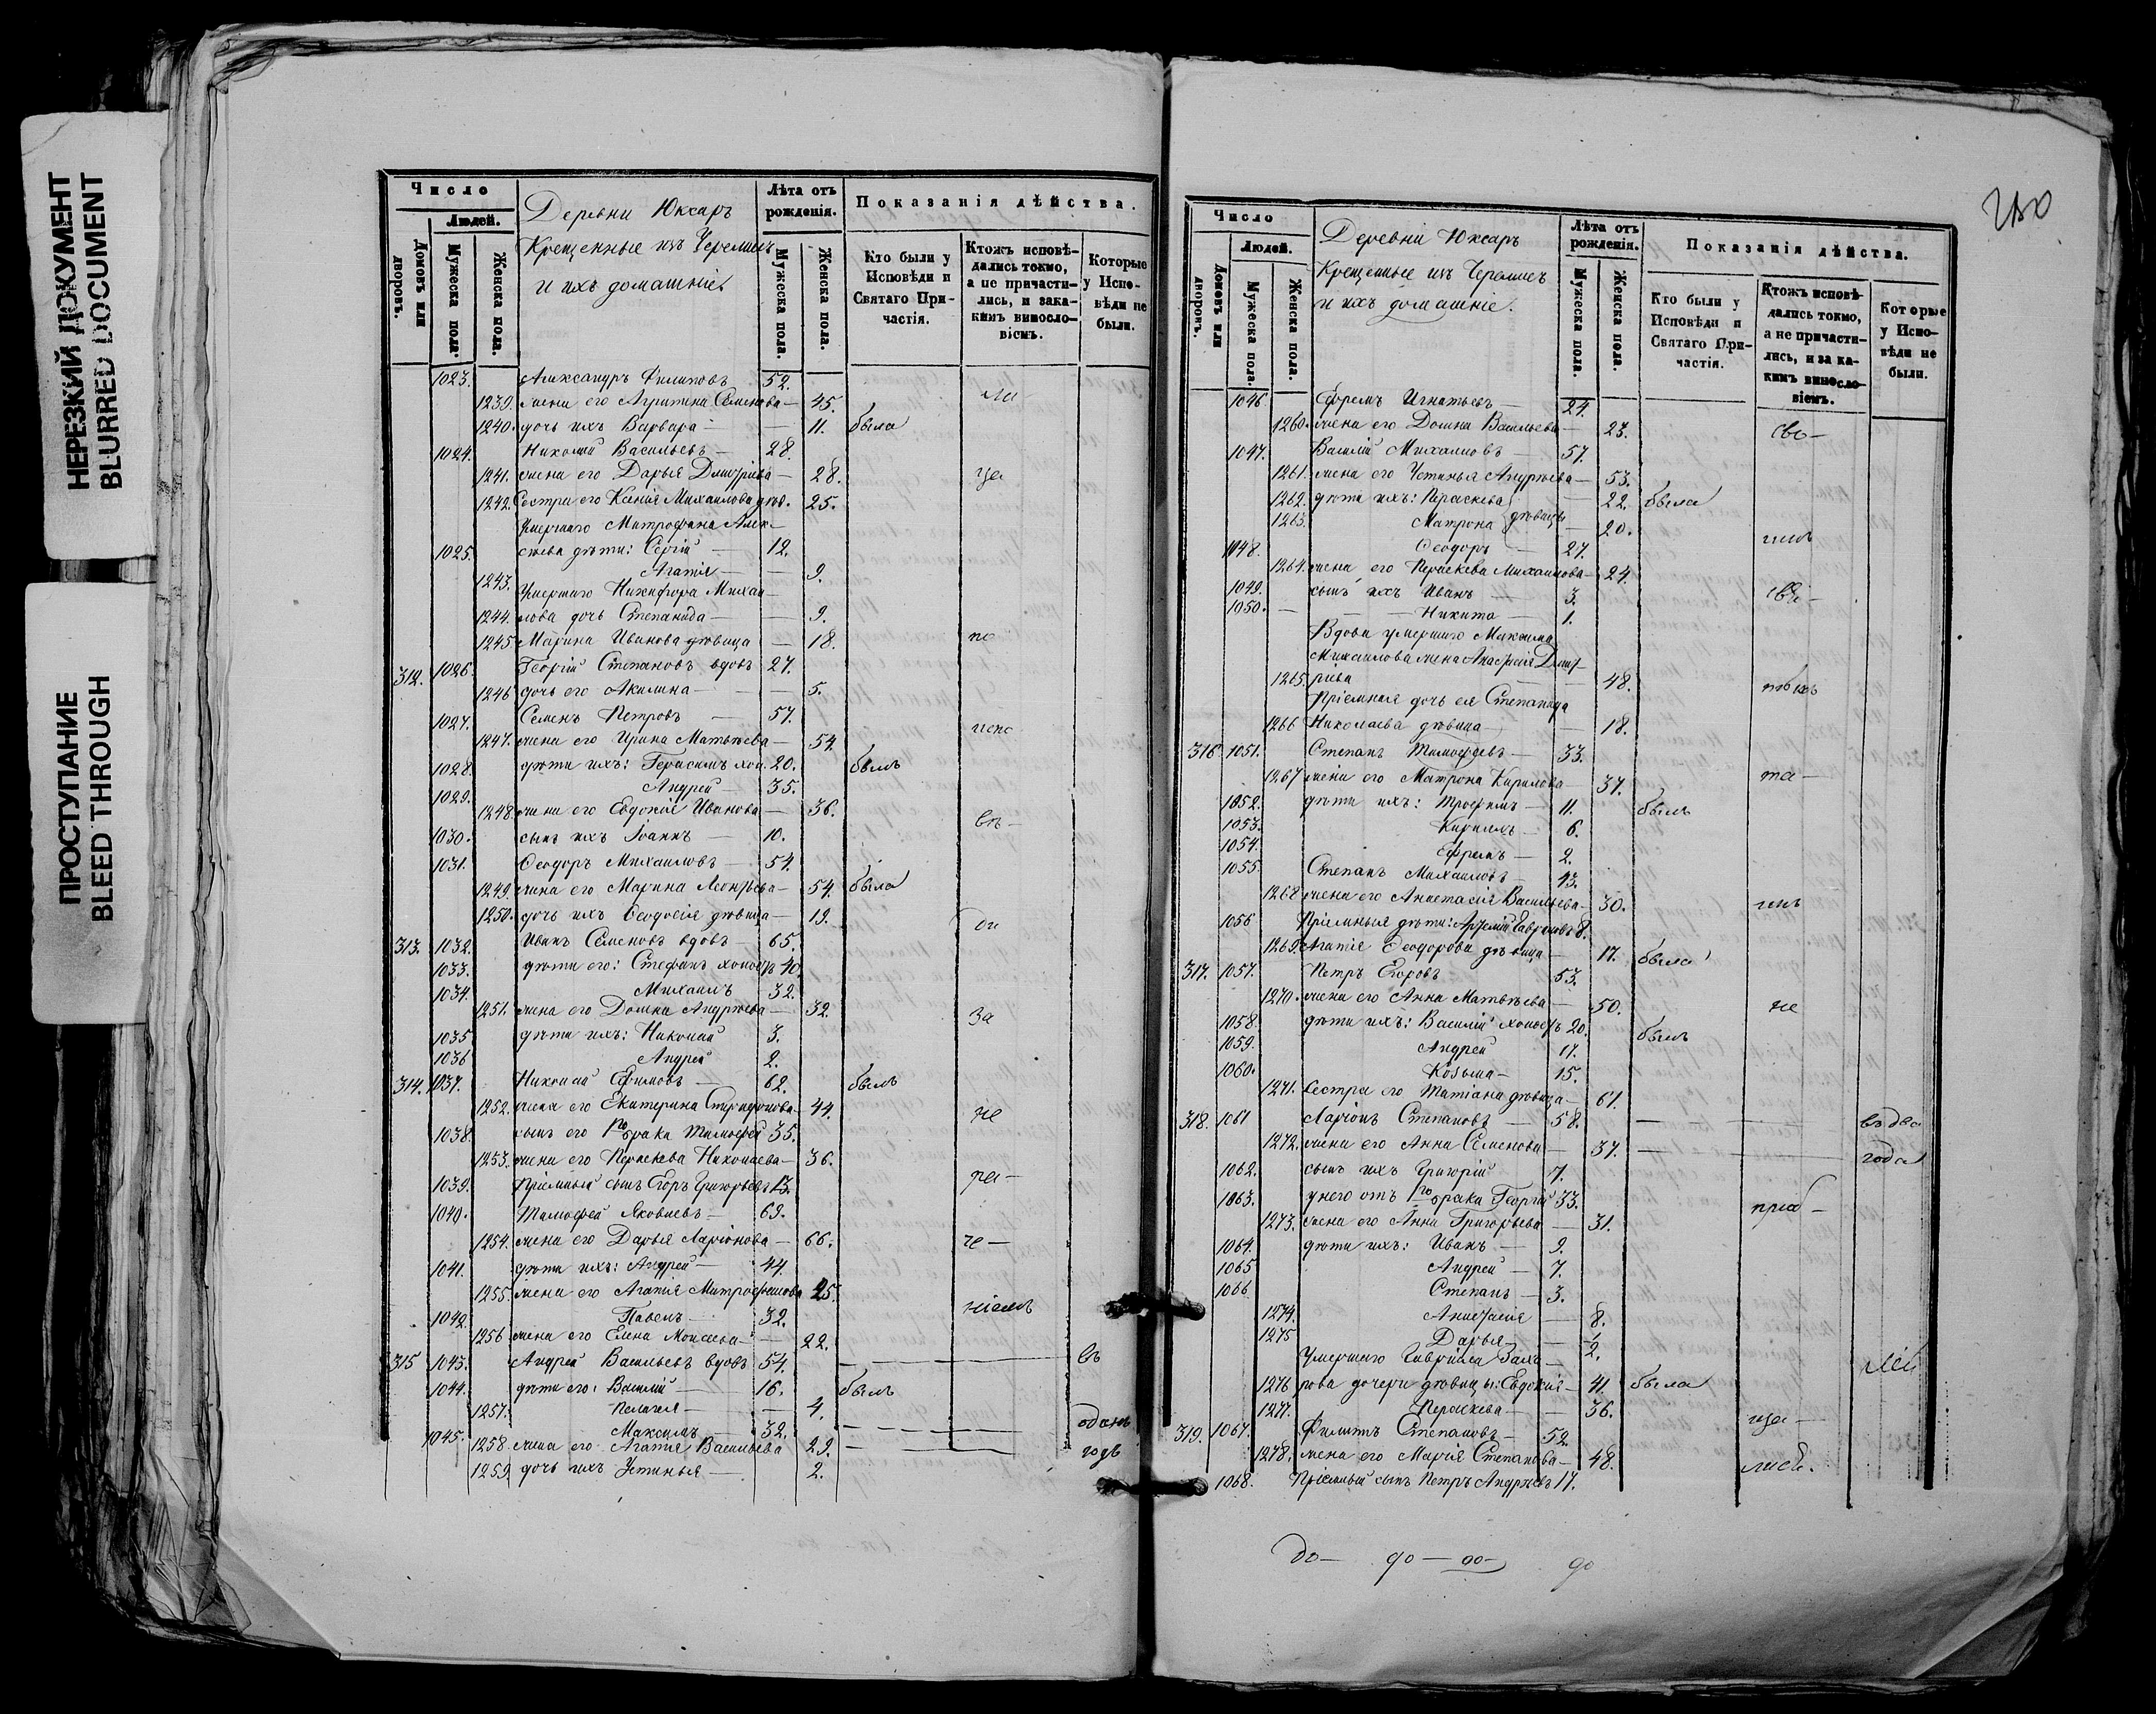 НЕРЕЗКИЙ ДОКУМЕНТ
BLURRED DOCUMENT
ПРОСТУПАНИЕ
BLEED THROUGH
Число
Людей.
Домовъ или дворовъ.
Мужеска пола.
Женска пола.
Деревни Юксаръ
Крещенные изъ Черемисъ
и ихъ домашніе
Лѣта отъ рожденія.
Мужеска пола.
Женска пола.
Показанія дѣйства.
Кто были у Исповѣди и Святаго Причастія.
Ктожъ исповѣ-
дались токмо,
а не причасти-
лись, и зака-
кимъ виносло-
віемъ.
Которые
у Испо-
вѣди не
были.
1023. Александръ Филиповъ 52.
1239. жена его Агрипина Семенова 45. ли
1240. дочь ихъ Варвара 11. была
1024. Николай Васильевъ 28.
1241. жена его Дарья Дмитріева 28. ца
1242. Сестра его Ксенія Михаилова дѣв. 25.
Умершаго Митрофана Алек-
1025. сѣева дѣти: Сергій 12.
1243. Агапія 9.
Умершаго Никифора Михаи-
1244. лова дочь Степанида 9.
1245. Марина Иванова дѣвица 18. по
312. 1026. Георгій Степановъ вдовъ 27.
1246 дочь его Акилина 5.
1027. Семенъ Петровъ 57.
1247. жена его Ирина Матвѣева 54.
1028. дѣти ихъ: Герасимъ хол. 20. былъ
1029. Андрей 35.
1248. жена его Евдокія Иванова 36. въ
1030. сынъ ихъ Іоаннъ 10.
1031. Ѳеодоръ Михаиловъ 54.
1249. жена его Марина Леонтьева 54. была
1250. дочь ихъ Ѳеодосія дѣвица 19.
313. 1032. Иванъ Семеновъ вдовъ 65.
1033. дѣти его: Стефанъ холостъ 40.
1034. Михаилъ 32.
1251. жена его Домна Андреева 32. за
1035 дѣти ихъ: Николай 3.
1036 Андрей 2.
314. 1037. Николай Ефимовъ 62. былъ
1252. жена его Екатерина Спиридонова 44. не
1038. сынъ его 1го брака Тимоѳей 35.
1253. жена его Параскева Николаева 36.
1039. Пріемный сынъ Егоръ Григорьевъ 13. ра-
1040. Тимоѳей Яковлевъ 69.
1254. жена его Дарья Ларіонова 66. че-
1041. дѣти ихъ: Андрей 44.
1255. жена его Агапія Митрофанова 25.
1042. Павелъ 32. ніемъ
1256 жена его Елена Моисеева 22.
315 1043. Андрей Васильевъ вдовъ 54. въ
1044. дѣти его: Василій 16. былъ
1257. Пелагея 4.
1045. Максимъ 32. одинъ
1258 жена его Агапія Васильева 29. годъ
1259. дочь ихъ Устинья 2.
Число
Людей.
Домовъ или дворовъ.
Мужеска пола.
Женска пола.
Деревни Юксаръ
Крещенные изъ Черемисъ
и ихъ домашніе.
Лѣта отъ рожденія.
Мужеска пола.
Женска пола.
Показанія дѣйства.
Кто были у Исповѣди и Святаго Причастія.
Ктожъ исповѣ-
дались токмо,
а не причасти-
лись, и за ка-
кимъ виносло-
віемъ.
Которые
у Испо-
вѣди не
были.
1046 Ефремъ Игнатьевъ 24.
1260. жена его Домна Васильева 23. свя-
1047. Василій Михаиловъ 57.
1261. жена его Устинья Андреева 53.
1262. дѣти ихъ: Параскева 22. была
1263. Матрона дѣвицы 20.
1048. Ѳеодоръ 27.
1264. жена его Параскева Михаилова 24.
1049. сынъ ихъ Иванъ 3.
1050. Никита 1.
Вдова умершаго Максима
Михаилова жена Анастасія Дмит-
1265. ріева 48.
Пріемная дочь ея Степанида
1266 Николаева дѣвица 18.
316 1051. Степанъ Тимоѳеевъ 33.
1267 жена его Матрона Кирилова 37. та-
1052. дѣти ихъ: Трофимъ 11. былъ
1053. Кириллъ 6.
1054. Ефремъ 2.
1055. Степанъ Михаиловъ 43.
1268 жена его Анастасія Васильева 30.
1056 Пріемныя дѣти: Арсеній Гавриловъ 8.
1269. Агапія Ѳеодорова дѣвица 17. была
317. 1057. Петръ Егоровъ 53.
1270. жена его Анна Матвѣева 50. не
1058. дѣти ихъ: Василій холостъ 20. былъ
1059. Андрей 17.
1060. Козьма 15.
1271. сестра его Татіана дѣвица 61.
318. 1061 Ларіонъ Степановъ 58. въ два
1272. жена его Анна Семенова 37. года
1062. сынъ ихъ Григорій 7.
1063. у него отъ 1го брака Георгій 33.
1273. жена его Анна Григорьева 31.
1064. дѣти ихъ: Иванъ 9.
1065 Андрей 7.
1066 Степанъ 3.
1274. Анастасія 8.
1275 Дарья 2.
Умершаго Гавріила Заха-
1276 рова дочери дѣвицы: Евдокія 41. была
1277. Параскева 36. ща-
319. 1067. Филипъ Степановъ 52.
1278. жена его Марія Степанова 48. лись.
1068. Пріемный сынъ Петръ Андреевъ 17.